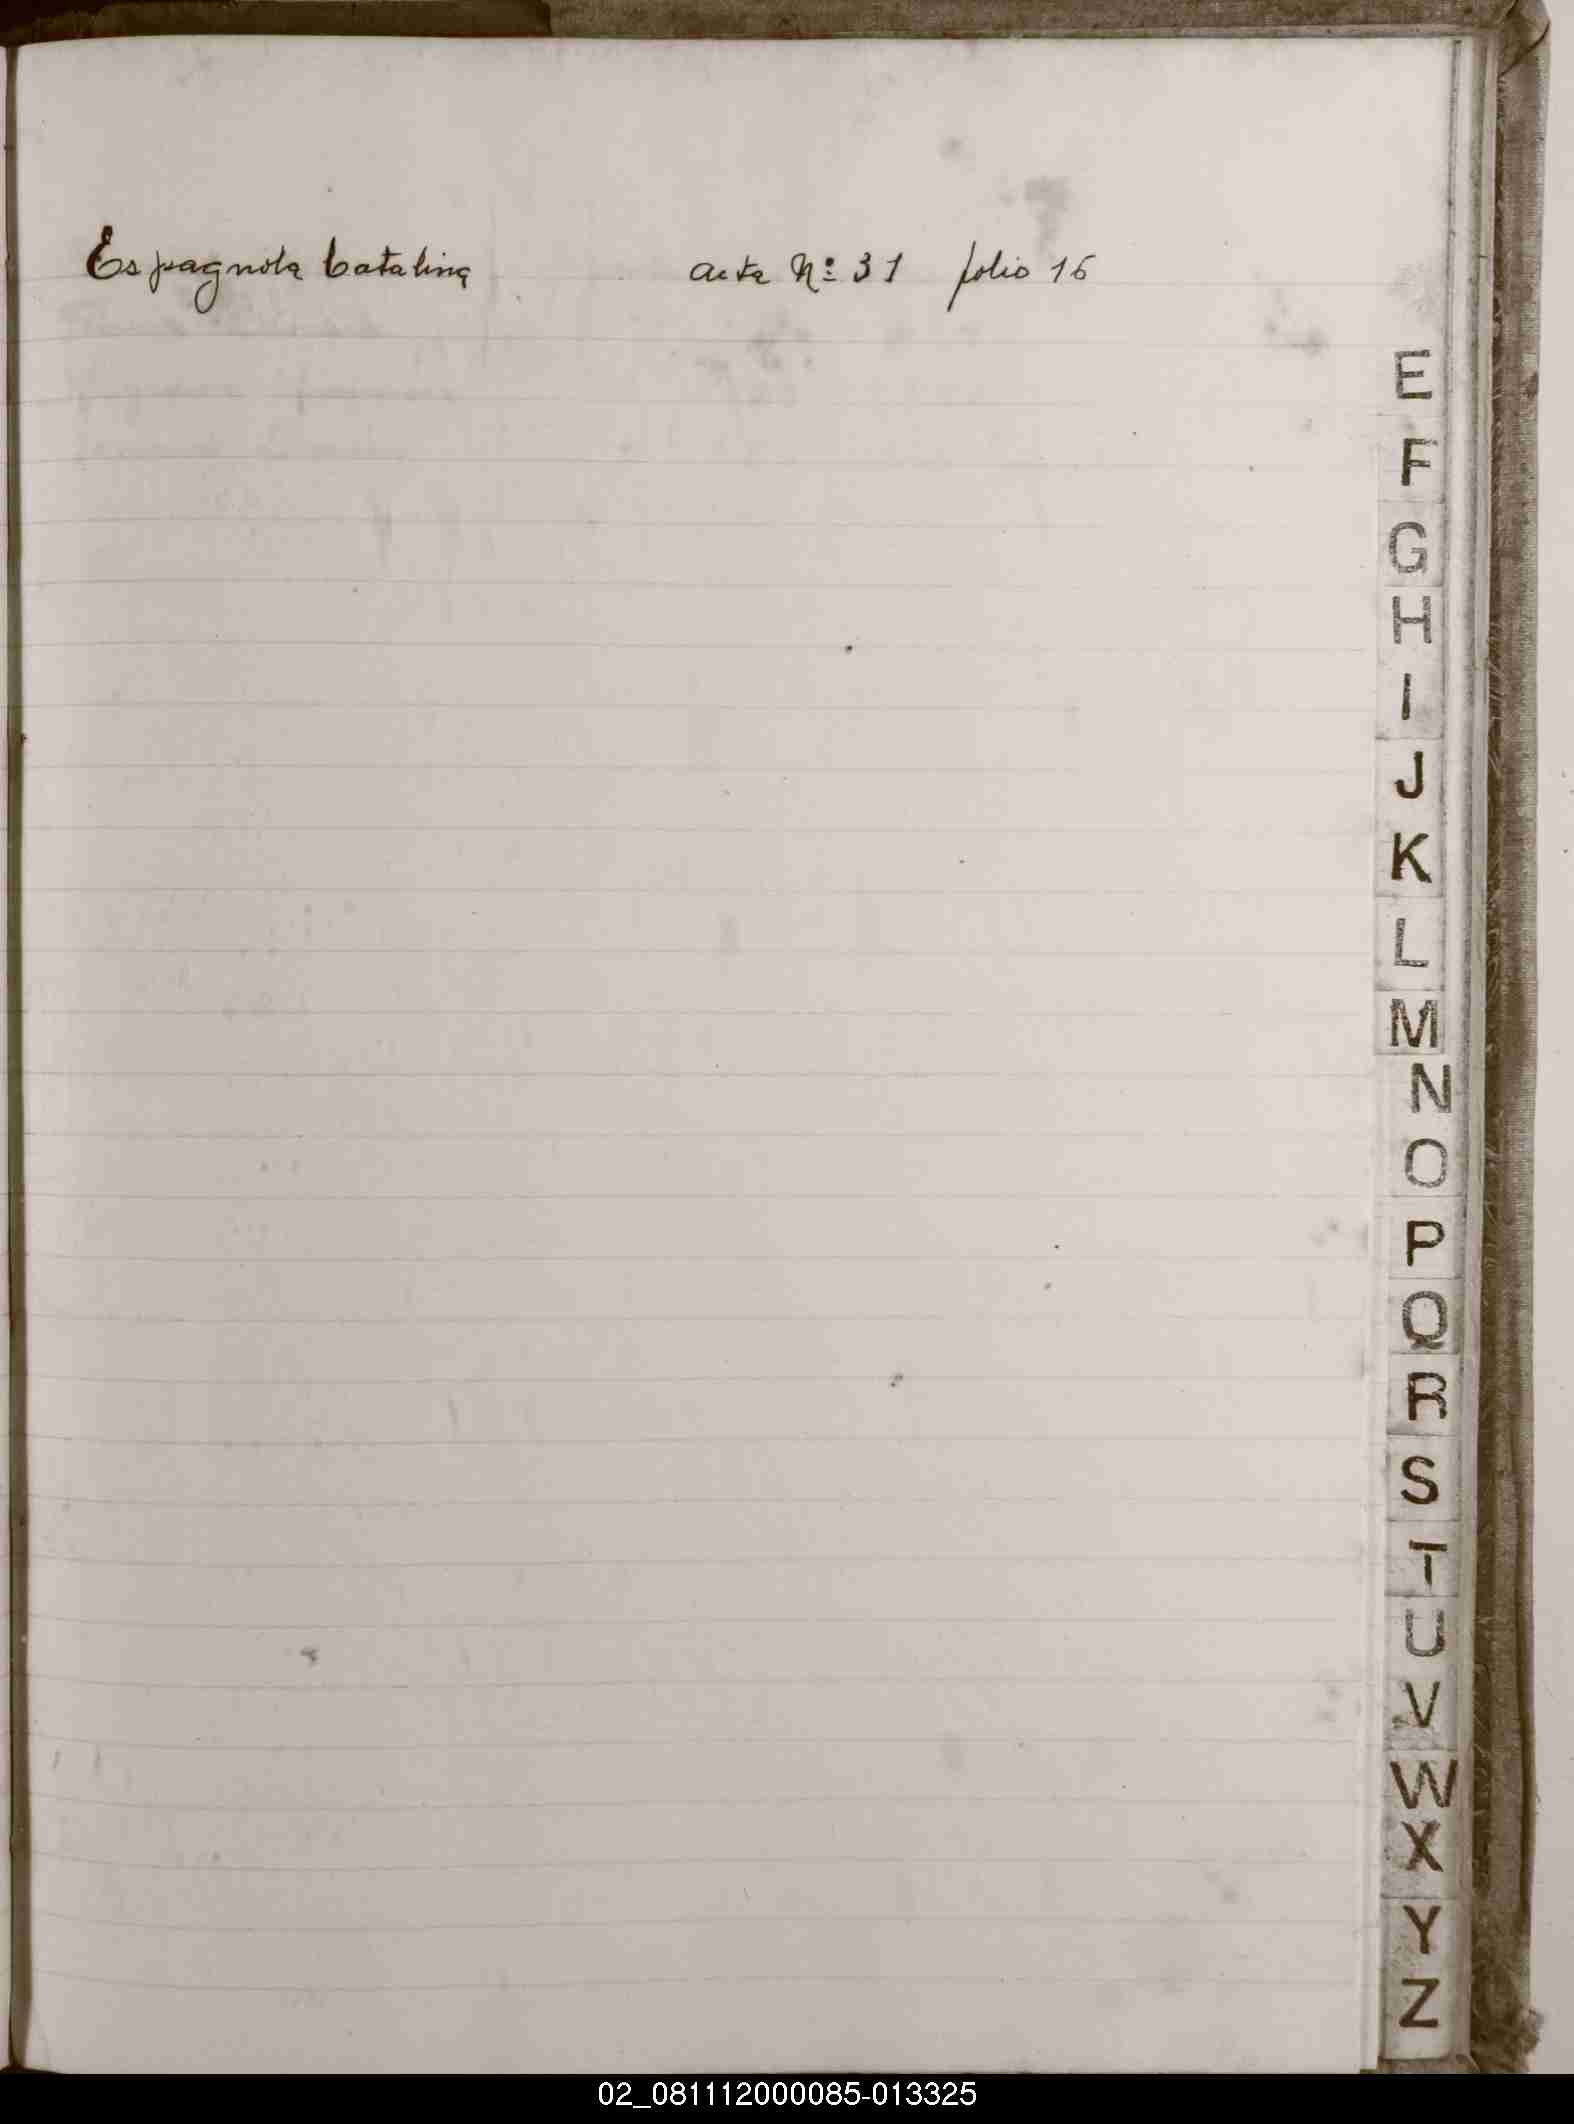 Espagnola Catalina acta Nº 31 folio 16
E
F
G
H
I
J
K
L
M
N
O
P
Q
R
S
T
U
V
W
X
Y
Z
02_081112000085-013325